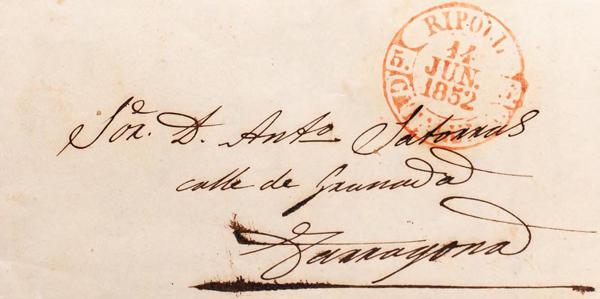 RIPOLL
14
JUN.
1852
Sõr. D. Antº Satorras
calle de Granada
Tarragona